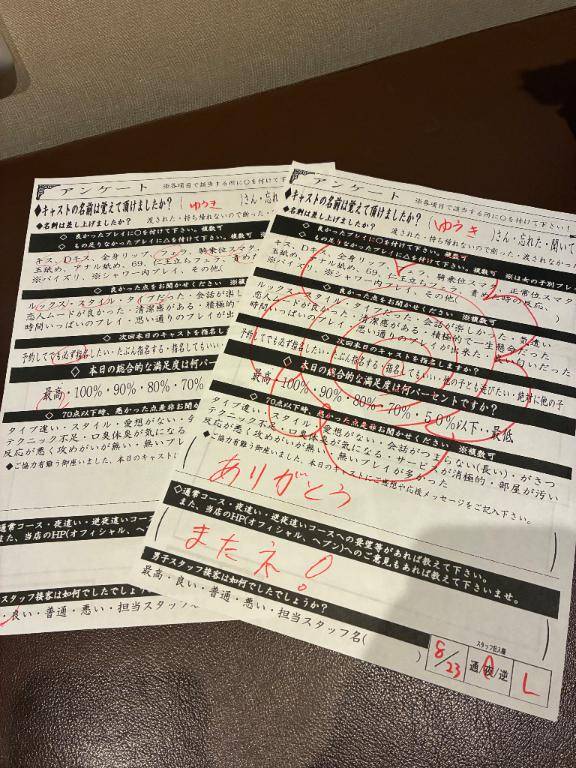 アンケート
※各項目で該当する所に○を付けて下さい
◆キャストの名前は覚えて頂けましたか?
(ゆうき)さん・忘れ
◆名刺は差し上げましたか?
渡された・持ち帰れないので断った・
◇ 良かったプレイに○を付けて下さい。複数可
◇ もの足りなかったプレイに△を付けて下さい。複数可
キス、Dキス、全身リップ、フェラ、騎乗位スマタ
玉舐め、アナル舐め、69、仁王立ちフェラ、責め
※パイズリ、※シャワー内プレイ、その他(
◇ 良かった点をお聞かせください ※複数可
ルックス・スタイル・タイプだった・会話が楽し
恋人ムードが良かった・清潔感がある・積極的
時間いっぱいのプレイ・思い通りのプレイが出来
◇ 次回本日のキャストを指名し
予約してでも必ず指名したい・たぶん指名する・指名しても
◆ 本日の総合的な満足度は何パー
最高・100%・90%・80%・70%
◇ 70点以下時、悪かった点是非お聞かせ
タイプ違い・スタイル・愛想がない・
テクニック不足・口臭体臭が気になる
反応が悪く攻めがいが無い・無いプレ
◆ご協力有難う御座いました、本日のキャスト
通常コース・夜這い・逆夜這いコース
また、当店のHP(オフィシャル、ヘブン)
スタッフ接客は如何でしたでしょ
・良い・普通・悪い・担当スタッフ
アンケート
※各項目で該当する所に○を付けて下さい
◆キャストの名前は覚えて頂けましたか?
(ゆうき)さん・忘れた・聞いて
◆名刺は差し上げましたか?
渡された・持ち帰れないので断った・渡されなか
◇ 良かったプレイに○を付けて下さい。複数可
◇ もの足りなかったプレイに△を付けて下さい。複数可 ※は女の子別プレ
キス、Dキス、全身リップ、フェラ、騎乗位スマタ、正常位スマタ
玉舐め、アナル舐め、69、仁王立ちフェラ、責めた時の反応、
※パイズリ、※シャワー内プレイ、その他(
◇ 良かった点をお聞かせください ※複数可
ルックス・スタイル・タイプだった・会話が楽しかった・気遣い
恋人ムードが良かった・清潔感がある・積極的で一生懸命だった
時間いっぱいのプレイ・思い通りのプレイが出来た・良い匂いだった
◇ 次回本日のキャストを指名しますか?
予約してでも必ず指名したい・たぶん指名する・指名してもいい・他の子とも遊びたい・絶対に他の子
◆ 本日の総合的な満足度は何パーセントですか?
最高・100%・90%・80%・70%・50%以下・最低
◇ 70点以下時、悪かった点是非お聞かせください ※複数可
タイプ違い・スタイル・愛想がない・会話がつまらない(長い)・がさつ
テクニック不足・口臭体臭が気になる・サービスが消極的・部屋が汚い
反応が悪く攻めがいが無い・無いプレイが多かった
◆ご協力有難う御座いました、本日のキャストにご感想や応援メッセージをご記入下さい。
ありがとう
◇通常コース・夜這い・逆夜這いコースへの要望等があれば教えて下さい。
また、当店のHP(オフィシャル、ヘブン)へのご意見もあれば教えて下さいませ。
またネ!
男子スタッフ接客は如何でしたでしょうか?
最高・良い・普通・悪い・担当スタッフ名( )
スタッフ記入欄
8/23
通/夜/逆
L